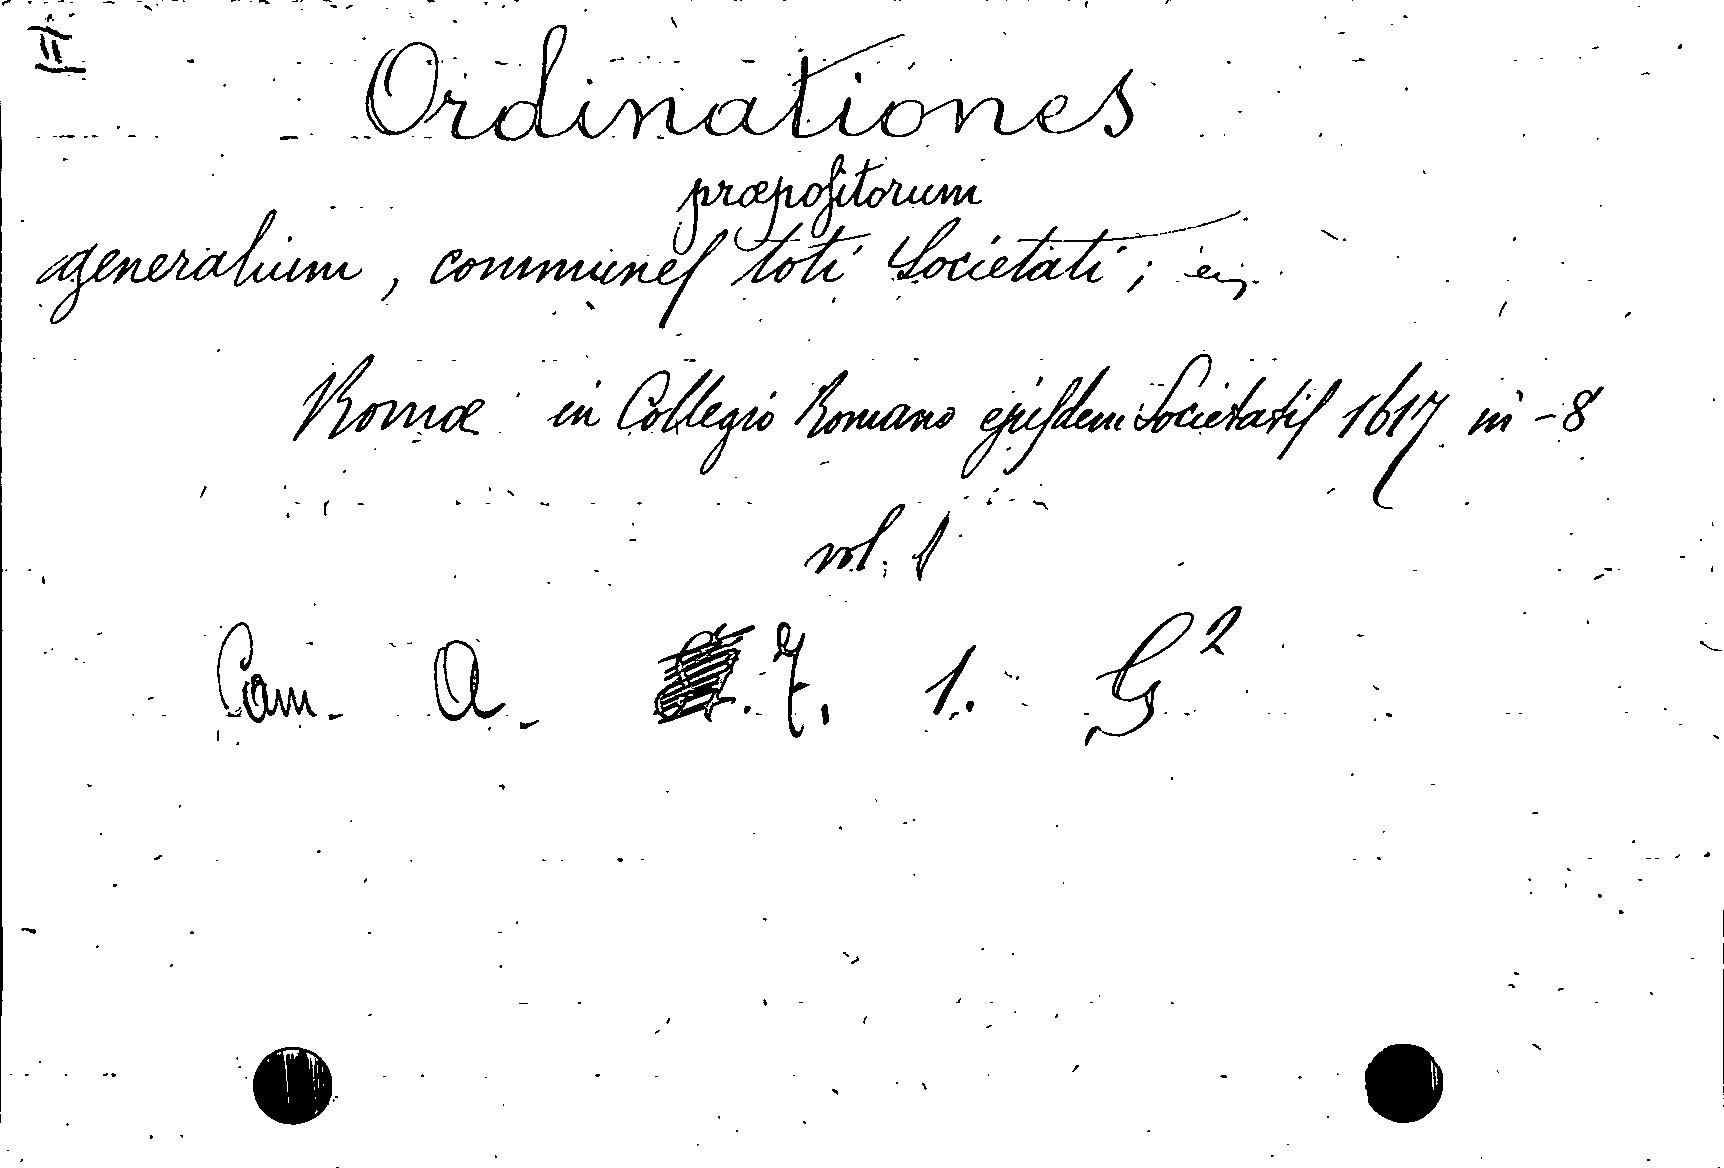 II
Ordinationes
præpositorum
generalium, communes toti Societati;
Romæ in Collegio Romano ejusdem Societatis 1617 in-8
vol. 1
Cam. A. 7. 1. G²